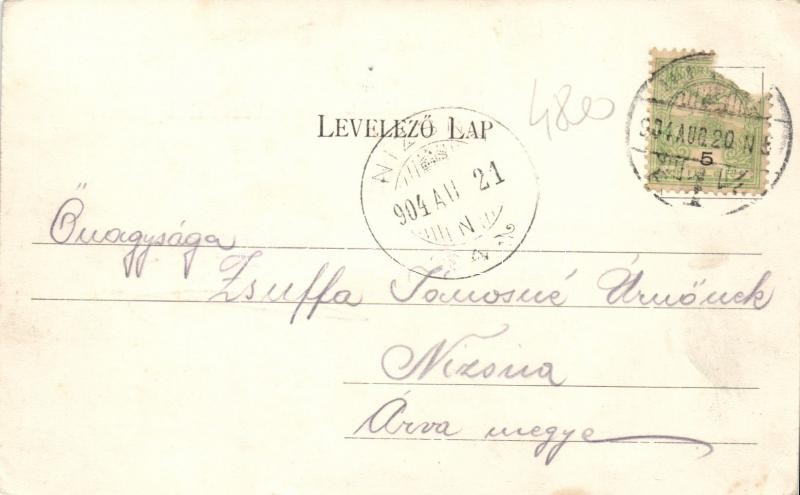 4800
LEVELEZŐ LAP
904 AUG. 20 N
5
904 AU 21
N
Őnagysága
Zsuffa Tamosné Úrnőnek
Nizsna
Árva megye